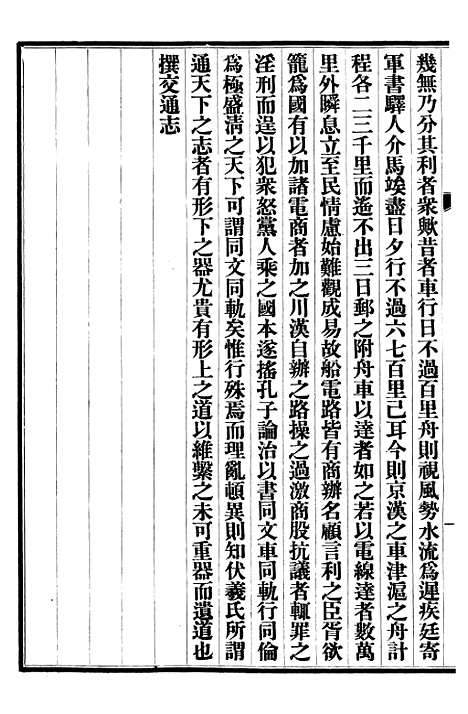 幾無乃分其利者衆歟昔者車行日不過百里舟則視風勢水流爲遲疾廷寄
軍書驛人介馬竢盡日夕行不過六七百里已耳今則京漢之車津滬之舟計
程各二三千里而遙不出三日郵之附舟車以達者如之若以電線達者數萬
里外瞬息立至民情慮始難觀成易故船電路皆有商辦名顧言利之臣胥欲
籠爲國有以加諸電商者加之川漢自辦之路操之過激商股抗議者輒罪之
淫刑而逞以犯衆怒黨人乘之國本遂搖孔子論治以書同文車同軌行同倫
爲極盛清之天下可謂同文同軌矣惟行殊焉而理亂頓異則知伏羲氏所謂
通天下之志者有形下之器尤貴有形上之道以維繫之未可重器而遺道也
撰交通志